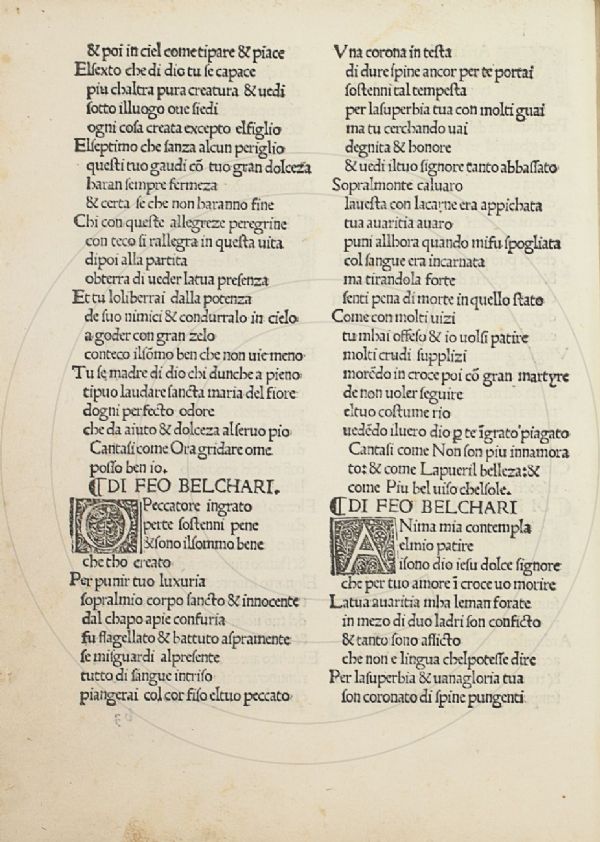 & poi in ciel come tipare & piace
Elsexto che di dio tu se capace
piu chaltra pura creatura & uedi
sotto illuogo oue siedi
ogni cosa creata excepto elfiglio
Elseptimo che sanza alcun periglio
questi tuo gaudi cō tuo gran dolceza
haran sempre fermeza
& certa se che non haranno fine
Chi con queste allegreze peregrine
con teco si rallegra in questa uita
dipoi alla partita
obterra di ueder latua presenza
Et tu loliberrai dalla potenza
de suo nimici & condurralo in cielo
a goder con gran zelo
conteco ilsōmo ben che non uie meno
Tu se madre di dio chi dunche a pieno
tipuo laudare sancta maria del fiore
dogni perfecto odore
che da aiuto & dolceza alseruo pio
Cantasi come Ora gridare ome
posso ben io.
¶DI FEO BELCHARI.
O Peccatore ingrato
perte sostenni pene
&sono ilsommo bene
che tho creato
Per punir tuo luxuria
sopralmio corpo sancto & innocente
dal chapo apie confuria
fu flagellato & battuto aspramente
se misguardi alpresente
tutto di sangue intriso
piangerai col cor fiso eltuo peccato
Vna corona in testa
di dure spine ancor per te portai
sostenni tal tempesta
per lasuperbia tua con molti guai
ma tu cerchando uai
degnita & honore
& uedi iltuo signore tanto abbassato
Sopralmonte caluaro
lauesta con lacarne era appichata
tua auaritia auaro
puni allhora quando mifu spogliata
col sangue era incarnata
ma tirandola forte
senti pena di morte in quello stato
Come con molti uizi
tu mhai offeso & io uolsi patire
molti crudi supplizi
morēdo in croce poi cō gran martyre
de non uoler seguire
eltuo costume rio
uedēdo iluero dio ꝑ te īgrato piagato
Cantasi come Non son piu innamora
to: & come Lapueril belleza:&
come Piu bel uiso chelsole.
¶DI FEO BELCHARI
ANima mia contempla
elmio patire
isono dio iesu dolce signore
che per tuo amore ī croce uo morire
Latua auaritia mha leman forate
in mezo di duo ladri son conficto
& tanto sono afflicto
che non e lingua chelpotesse dire
Per lasuperbia & uanagloria tua
son coronato di spine pungenti